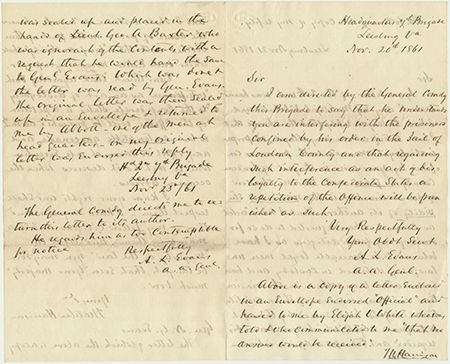 was sealed up and placed in the
hands of Lieut Genl A. Baxter who
was ignorant of the contents with a
request that he would hand the same
to Genl Evans, which was done &
the letter was read by Genl Evans.
The original letter was then sealed
up in an Envellope & returned to
me by Abbott one of the men at
head quarters on my original
letter was Endorsed this reply
Hd Qrs 7th Brigade
Leesburg Va
Nov 23d/61
The General Comdg directs me to re
turn this letter to its author.
He regards him as too Contemptible
for notice
Respectfully
A. L. Evans
A. A. Genl.
Headquarters 7th Brigade
Leesburg Va
Nov. 20th 1861
Sir
I am directed by the General Comdg
this Brigade to say that he understands
you are interfering with the prisoners
confined by his order in the Jail of
Loudoun County and that regarding
such interference as an act of dis-
loyalty to the Confederate States a
repetition of the offence will be pun
ished as such.
Very Respectfully
Your Obdt Servt
A. L. Evans
A. A. Genl.
Above is a copy of a letter Enclosed
in an Envellope Endorsed "Official" and
handed to me by Elijah V. White who was
told to the Communicated to me "that no
answer would be received"